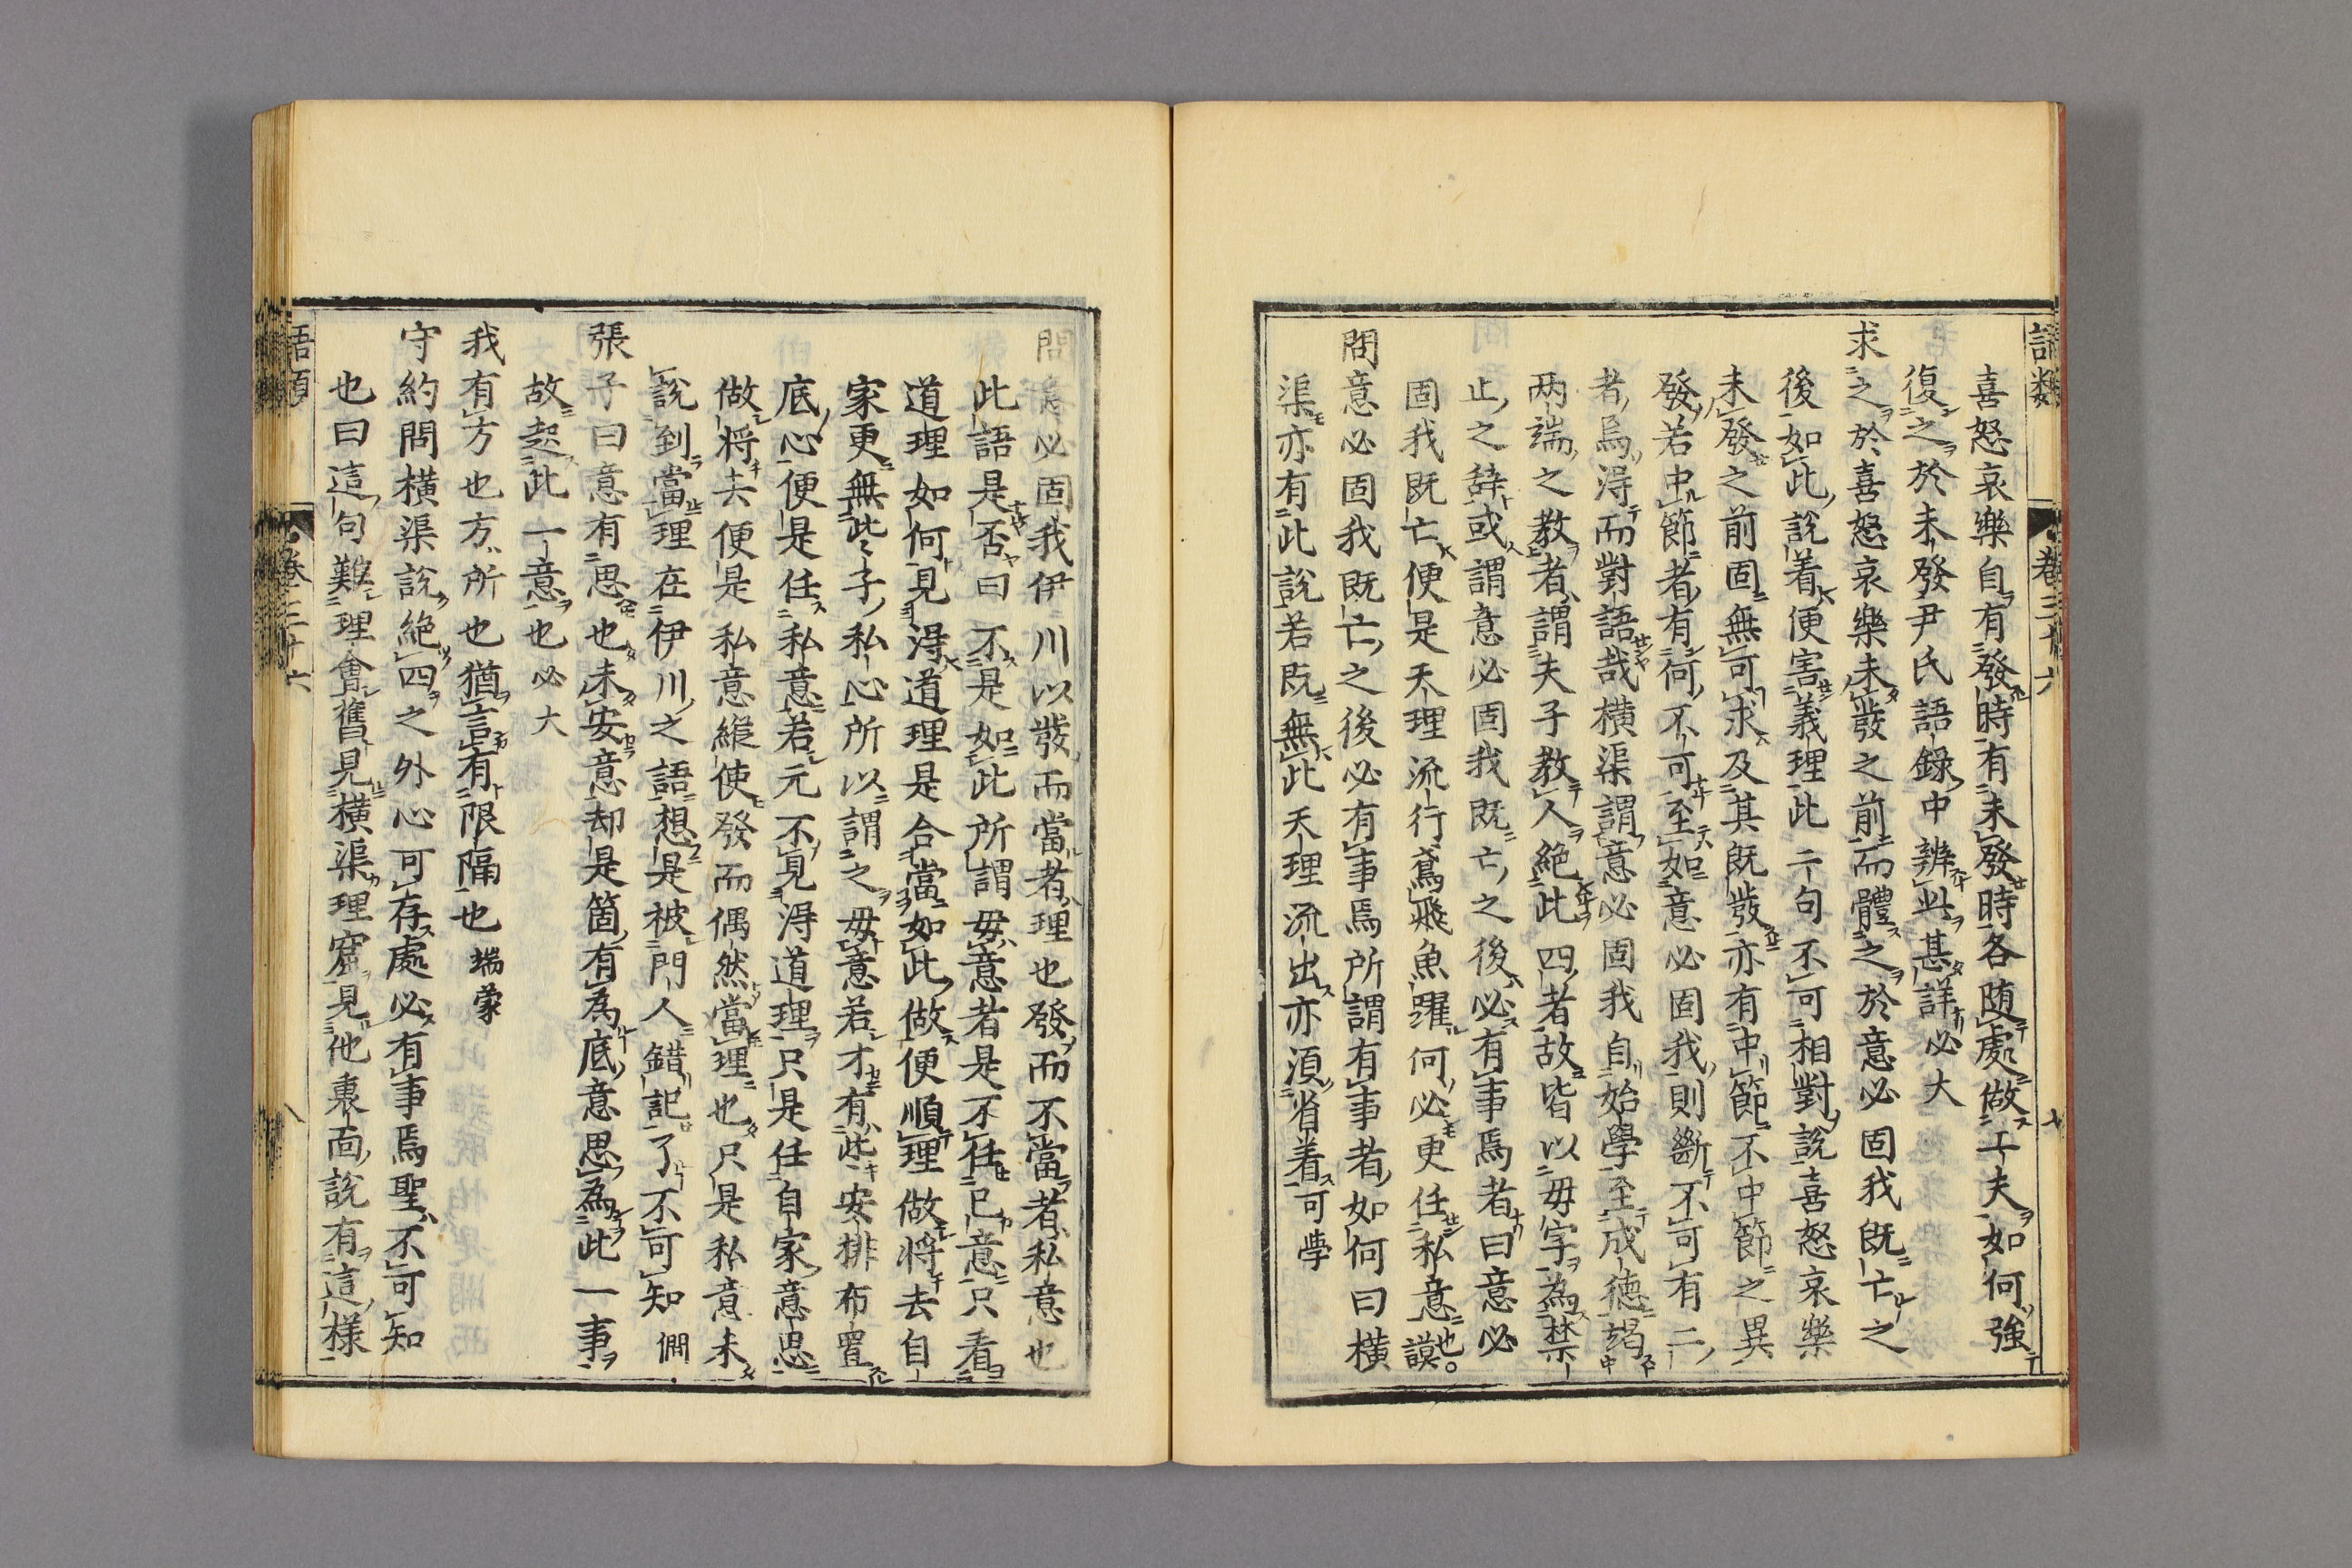 語類　卷三十六　十
喜怒哀樂自有發時有未發時各随處做工夫如何強
復之於未發尹氏語錄中辨此甚詳必大
求之於喜怒哀樂未發之前而體之於意必固我既亡之
後如此說着便害義理此二句不可相對說喜怒哀樂
未發之前固無可求及其既發亦有中節不中節之異
發若中節者有何不可至如意必固我則斷不可有二
者烏得而對語哉横渠謂意必固我自始學至成德竭
两端之教者謂夫子教人絶此四者故皆以毋字為禁
止之辞或謂意必固我既亡之後必有事焉者曰意必
固我既亡便是天理流行鳶飛魚躍何必更任私意也謨
問意必固我既亡之後必有事焉所謂有事者如何曰横
渠亦有此說若既無此天理流出亦須省着可學
問意必固我伊川以發而當者理也發而不當者私意也
此語是否曰不是如此所謂毋意者是不任己意只看
道理如何見得道理是合當如此做便順理做將去自
家更無些子私心所以謂之毋意若才有些安排布置
底心便是任私意若元不見得道理只是任自家意思
做將去便是私意縦使發而偶然當理也只是私意未
說到當理在伊川之語想是被門人錯記了不可知僩
張子曰意有思也未安意却是箇有為底意思為此一事
故起此一意也必大
我有方也方所也猶言有限隔也端蒙
守約問横渠說絶四之外心可存處必有事焉聖不可知
也曰這句難理會舊見横渠理窟見他裏面說有這様
語類　卷三十六